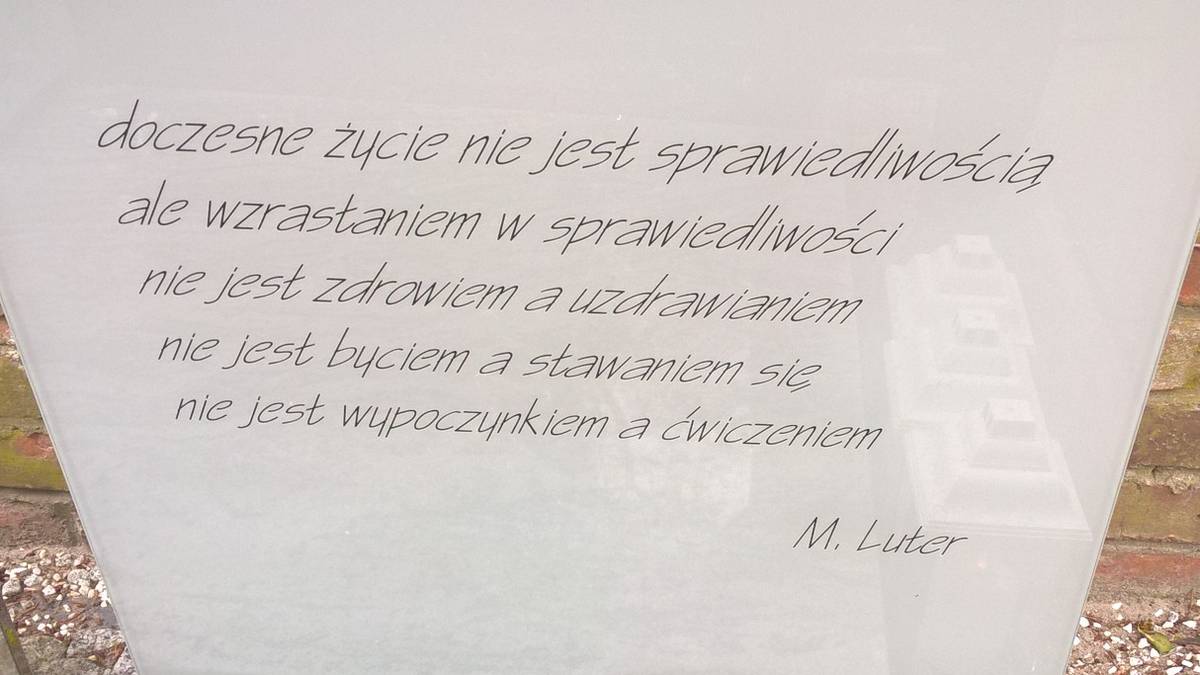 doczesne życie nie jest sprawiedliwością
ale wzrastaniem w sprawiedliwości
nie jest zdrowiem a uzdrawianiem
nie jest byciem a stawaniem się
nie jest wypoczynkiem a ćwiczeniem
M. Luter